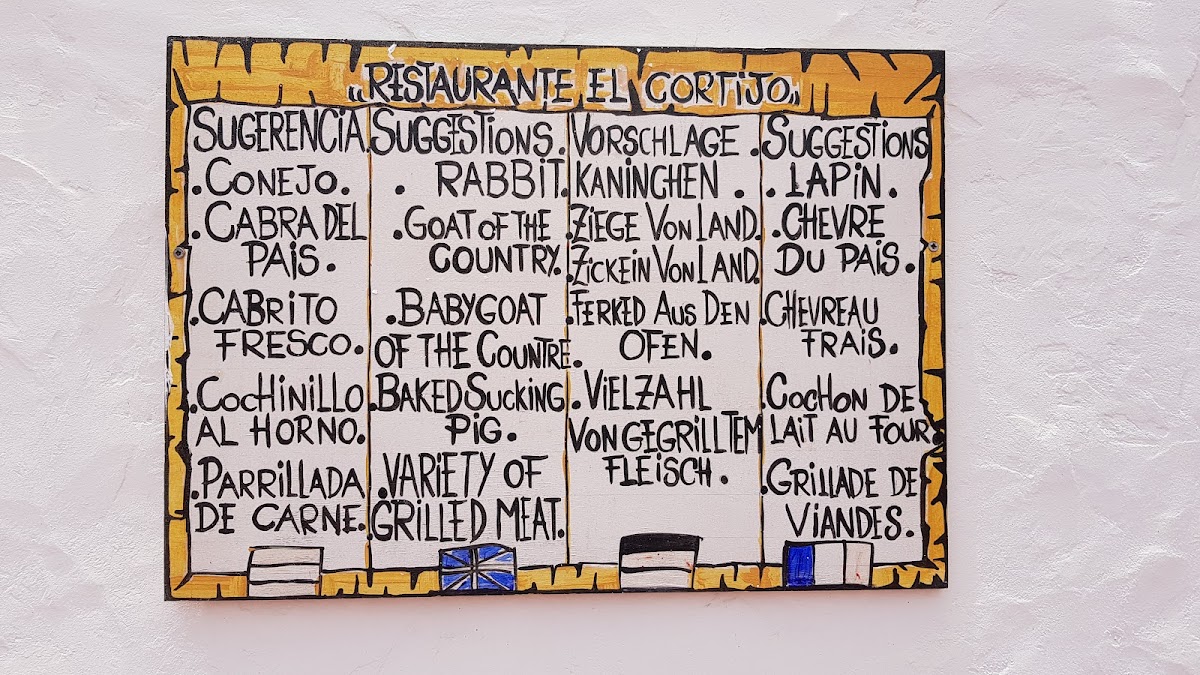 „RESTAURANTE EL CORTIJO„
SUGERENCIA
.CONEJO.
.CABRA DEL
PAIS.
.CABRITO
FRESCO.
.COCHINILLO
AL HORNO.
.PARRILLADA
DE CARNE.
SUGGESTIONS.
. RABBIT.
.GOAT OF THE
COUNTRY.
.BABYGOAT
OF THE COUNTRE.
.BAKED SUCKING
PIG.
.VARIETY OF
GRILLED MEAT.
VORSCHLAGE
.KANINCHEN .
.ZIEGE VON LAND.
.ZICKEIN VON LAND.
.FERKED AUS DEN
OFEN.
.VIELZAHL
VON GEGRILLTEM
FLEISCH.
.SUGGESTIONS
.LAPIN.
.CHEVRE
DU PAIS.
.CHEVREAU
FRAIS.
.COCHON DE
LAIT AU FOUR.
.GRILLADE DE
VIANDES.